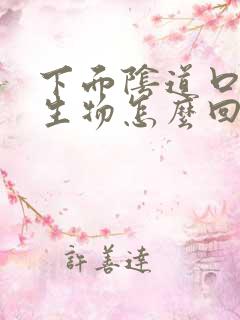 下面陰道口
生物怎麼回
許善達